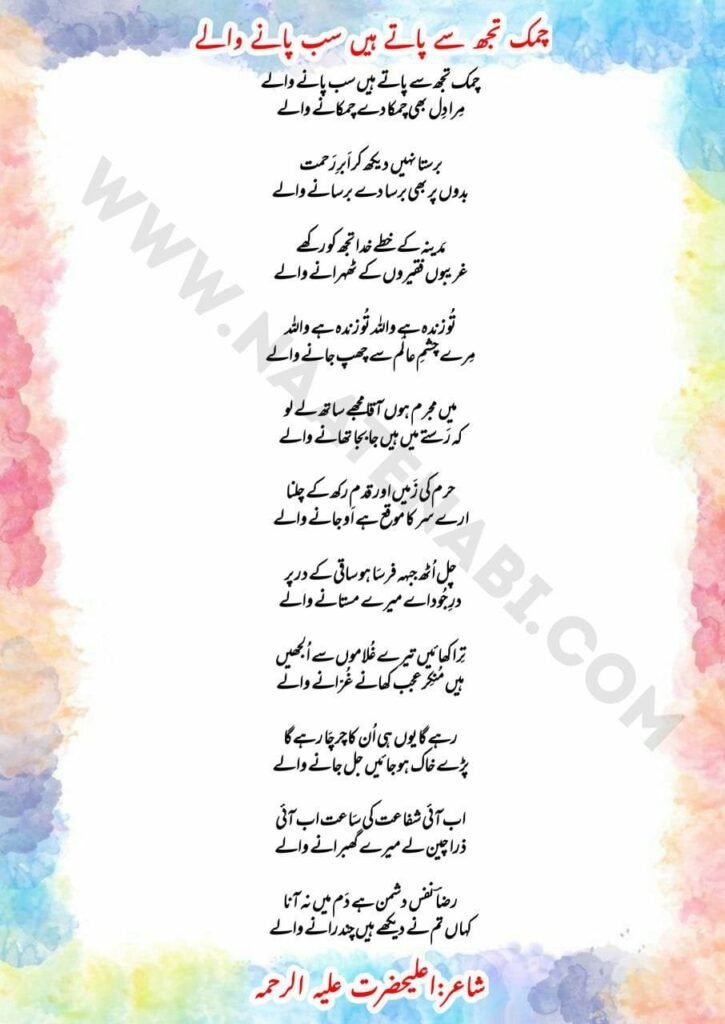 چمک تجھ سے پاتے ہیں سب پانے والے
چمک تجھ سے پاتے ہیں سب پانے والے
مِرا دِل بھی چمکا دے چمکانے والے
برستا نہیں دیکھ کر اَبرِ رَحمت
بدوں پر بھی برسا دے برسانے والے
مدینہ کے خطے خدا تجھ کو رکھے
غریبوں فقیروں کے ٹھہرانے والے
تُو زندہ ہے واللہ تُو زندہ ہے واللہ
مِرے چشمِ عالَم سے چھپ جانے والے
میں مجرم ہوں آقا مجھے ساتھ لے لو
کہ رَستے میں ہیں جا بجا تھانے والے
حرم کی زَمیں اور قدم رکھ کے چلنا
ارے سر کا موقع ہے اَو جانے والے
چل اُٹھ جبہہ فرسا ہو ساقی کے در پر
درِ جُود اے میرے مستانے والے
تِرا کھائیں تیرے غُلاموں سے اُلجھیں
ہیں مُنکِر عجب کھانے غُرّانے والے
رہے گا یوں ہی اُن کا چرچا رہے گا
پڑے خاک ہو جائیں جل جانے والے
اب آئی شفاعت کی سَاعت اب آئی
ذرا چین لے میرے گھبرانے والے
رضاؔ نفس دشمن ہے دَم میں نہ آنا
کہاں تم نے دیکھے ہیں چندرانے والے
شاعر:اعلیحضرت علیہ الرحمہ
WWW.NAATENABI.COM